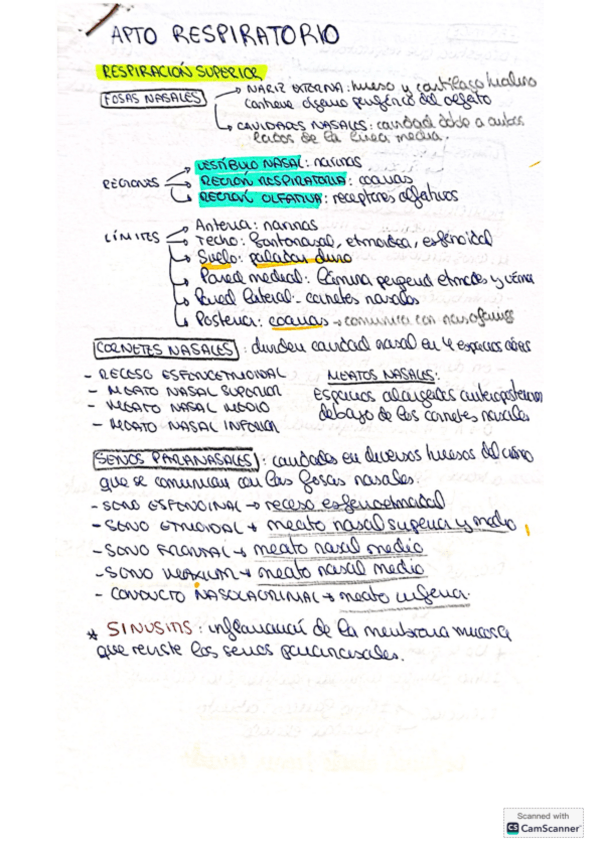 APTO RESPIRATORIO
RESPIRACIÓN SUPERIOR
FOSAS NASALES → NARIZ EXTERNA: hueso y cartílago hialino
contiene órgano periférico del olfato
→ CAVIDADES NASALES: cavidad doble a ambos
lados de la línea media.
REGIONES → VESTÍBULO NASAL: narinas
→ REGIÓN RESPIRATORIA: coanas
→ REGIÓN OLFATIVA: receptores olfativos
LÍMITES → Anterior: narinas
→ Techo: frontonasal, etmoidea, esfenoidal
→ Suelo: paladar duro
→ Pared medial: lámina perpend etmoides y vómer
→ Pared lateral: cornetes nasales
→ Posterior: coanas → comunica con nasofaringe
CORNETES NASALES: dividen cavidad nasal en 4 espacios aéreos
- RECESO ESFENOETMOIDAL
- MEATO NASAL SUPERIOR
- MEATO NASAL MEDIO
- MEATO NASAL INFERIOR
MEATOS NASALES:
Espacios alargados anteroposterior
debajo de los cornetes nasales
SENOS PARANASALES: cavidades en diversos huesos del cráneo
que se comunican con las fosas nasales.
- SENO ESFENOIDAL → receso esfenoetmoidal
- SENO ETMOIDAL → meato nasal superior y medio
- SENO FRONTAL → meato nasal medio
- SENO MAXILAR → meato nasal medio
- CONDUCTO NASOLACRIMAL → meato inferior.
* SINUSITIS: inflamación de la membrana mucosa
que reviste los senos paranasales.
Scanned with
CS CamScanner